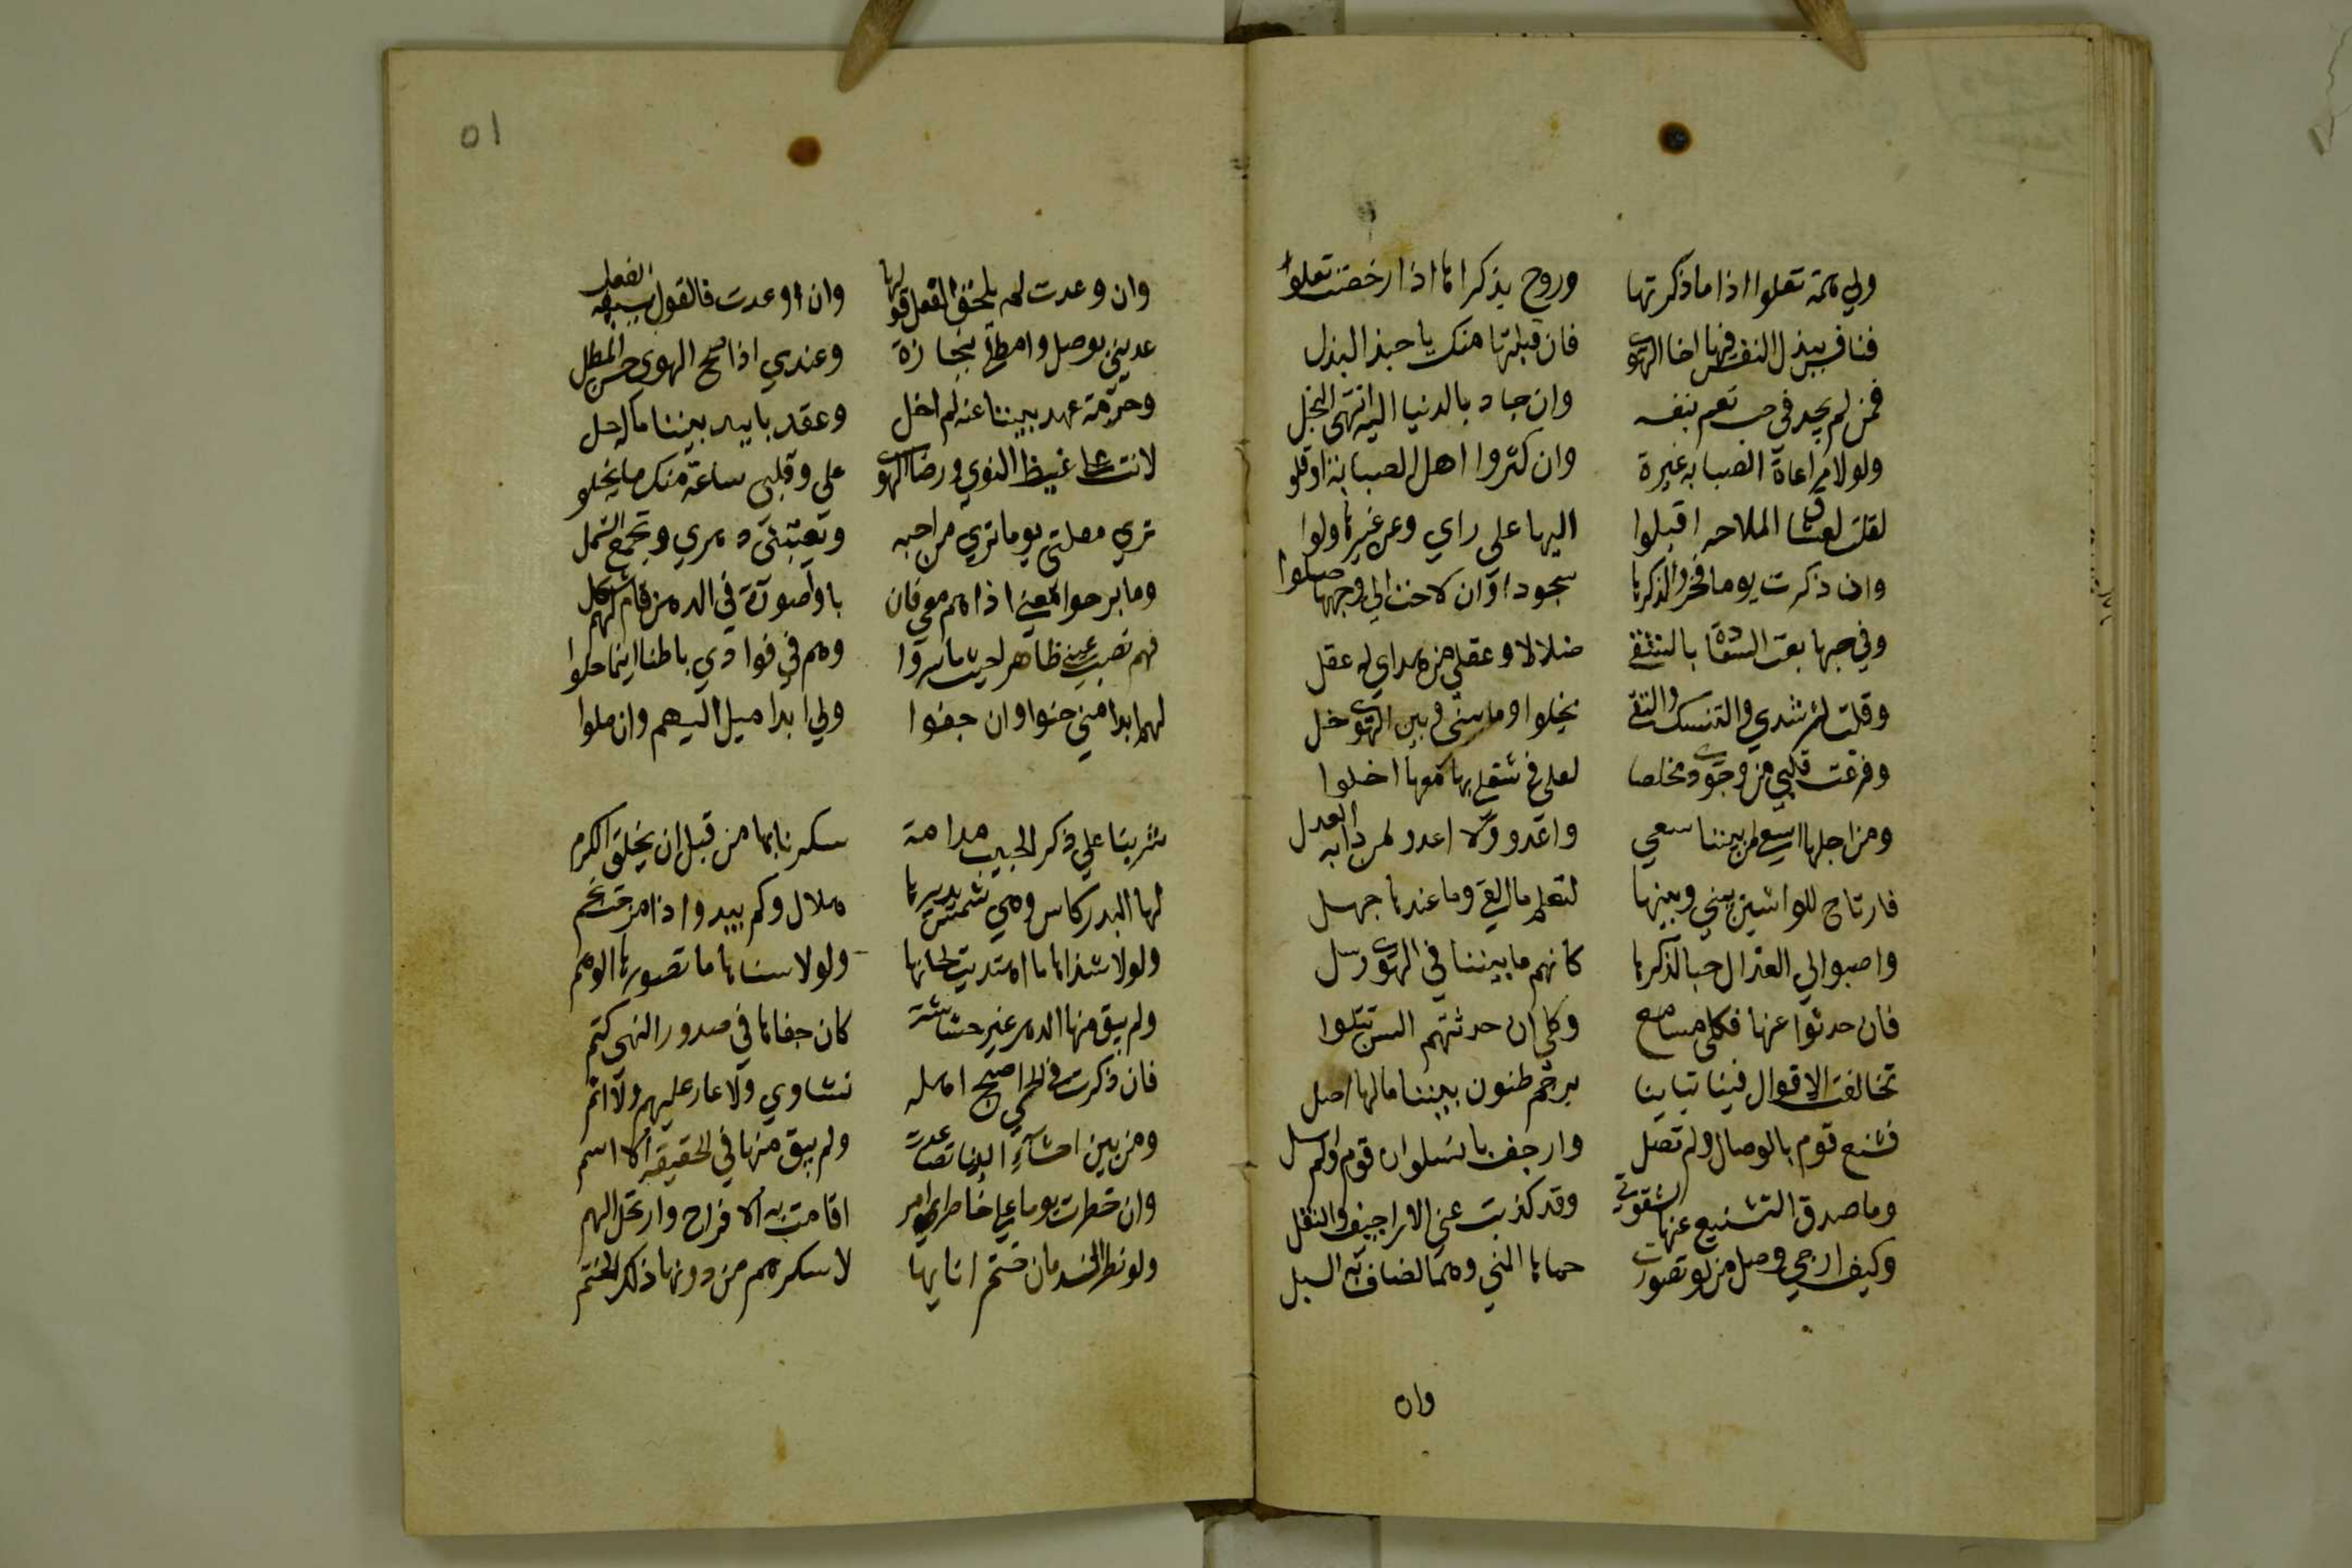 ولي همة تعلوا اذا ما ذكرتها وروح بذكراها اذا رخصت تغلوا
فنافس ببذل النفس فيها اخا الهوى فان قبلتها منك يا حبذ البذل
فمن لم يجد في حب نعم بنفسه وان جاد بالدنيا اليه انتهى البخل
ولولا مراعاة الصبابة غيرة وان كثروا اهل الصبابة او قلو
لقلت لعشاق الملاحه اقبلوا اليها على راي وعن غيرها ولوا
وان ذكرت يوما فخروا لذكرها سجودا وان لاحت الى وجهها صلوا
وفي حبها بعت السعادة بالشقى ضلالا وعقلي من هداي له عقل
وقلت لرشدي والتنسك والتقى تخلوا وما بيني وبين الهوى خل
وفرغت قلبي من وجودى مخلصا لعلي في شغلي بها معها اخلوا
ومن اجلها اسعى لمن بيننا سعى واغدو ولا اعدو لمن دابه العدل
فارتاح للواشين بيني وبينها لتعلم ما القى وما عندها جهل
واصبوا الى العذال حبا لذكرها كانهم ما بيننا في الهوى رسل
فان حدثوا عنها فكلي مسامع وكلي ان حدثتهم السن تتلوا
تخالفت الاقوال فينا تباينا برجم ظنون بيننا ما لها اصل
فشنع قوم بالوصال ولم تصل وارجف بالسلوان قوم ولم اسل
وما صدق التشنيع عنها لشقوتي وقد كذبت عني الاراجيف والنقل
وكيف ارجي وصل من لو تصورت حماها المنى وهما لضاقت به السبل
وان
٥١
وان وعدت لم يلحق الفعل قولها وان اوعدت فالقول يسبقه الفعل
عديني بوصل وامطلي بنجازه وعندي اذا صح الهوى حسن المطل
وحرمة عهد بيننا عنه لم احل وعقد بايد بيننا ما له حل
لانت على غيظ النوى ورضا الهوى علي وقلبي ساعة منك ما يخلو
ترى مقلتي يوما ترى من احبهم ويعتبني دهري ويجتمع الشمل
وما برحوا معنى اذاهم معي فان ناو صورة في الدهر قام لهم شكل
فهم نصب عيني ظاهرا حيث ما سروا وهم في فوادي باطنا اينما حلوا
لهم ابدا مني حنوا وان جفوا ولي ابدا ميل اليهم وان ملوا
شربنا على ذكر الحبيب مدامة سكرنا بها من قبل ان يخلق الكرم
لها البدر كاس وهي شمس يديرها هلال وكم يبدوا اذا مزجت نجم
ولولا شذاها ما اهتديت لحانها ولولا سناها ما تصورها الوهم
ولم يبق منها الدهر غير حشاشة كان خفاها في صدور النهى كتم
فان ذكرت في الحي اصبح اهله نشاوى ولا عار عليهم ولا اثم
ومن بين احشاء الدنان تصاعدت ولم يبق منها في الحقيقه الا اسم
وان خطرت يوما على خاطر امرء اقامت به الافراح وارتحل الهم
ولو نظر الندمان ختم انايها لاسكرهم من دونها ذلك الختم